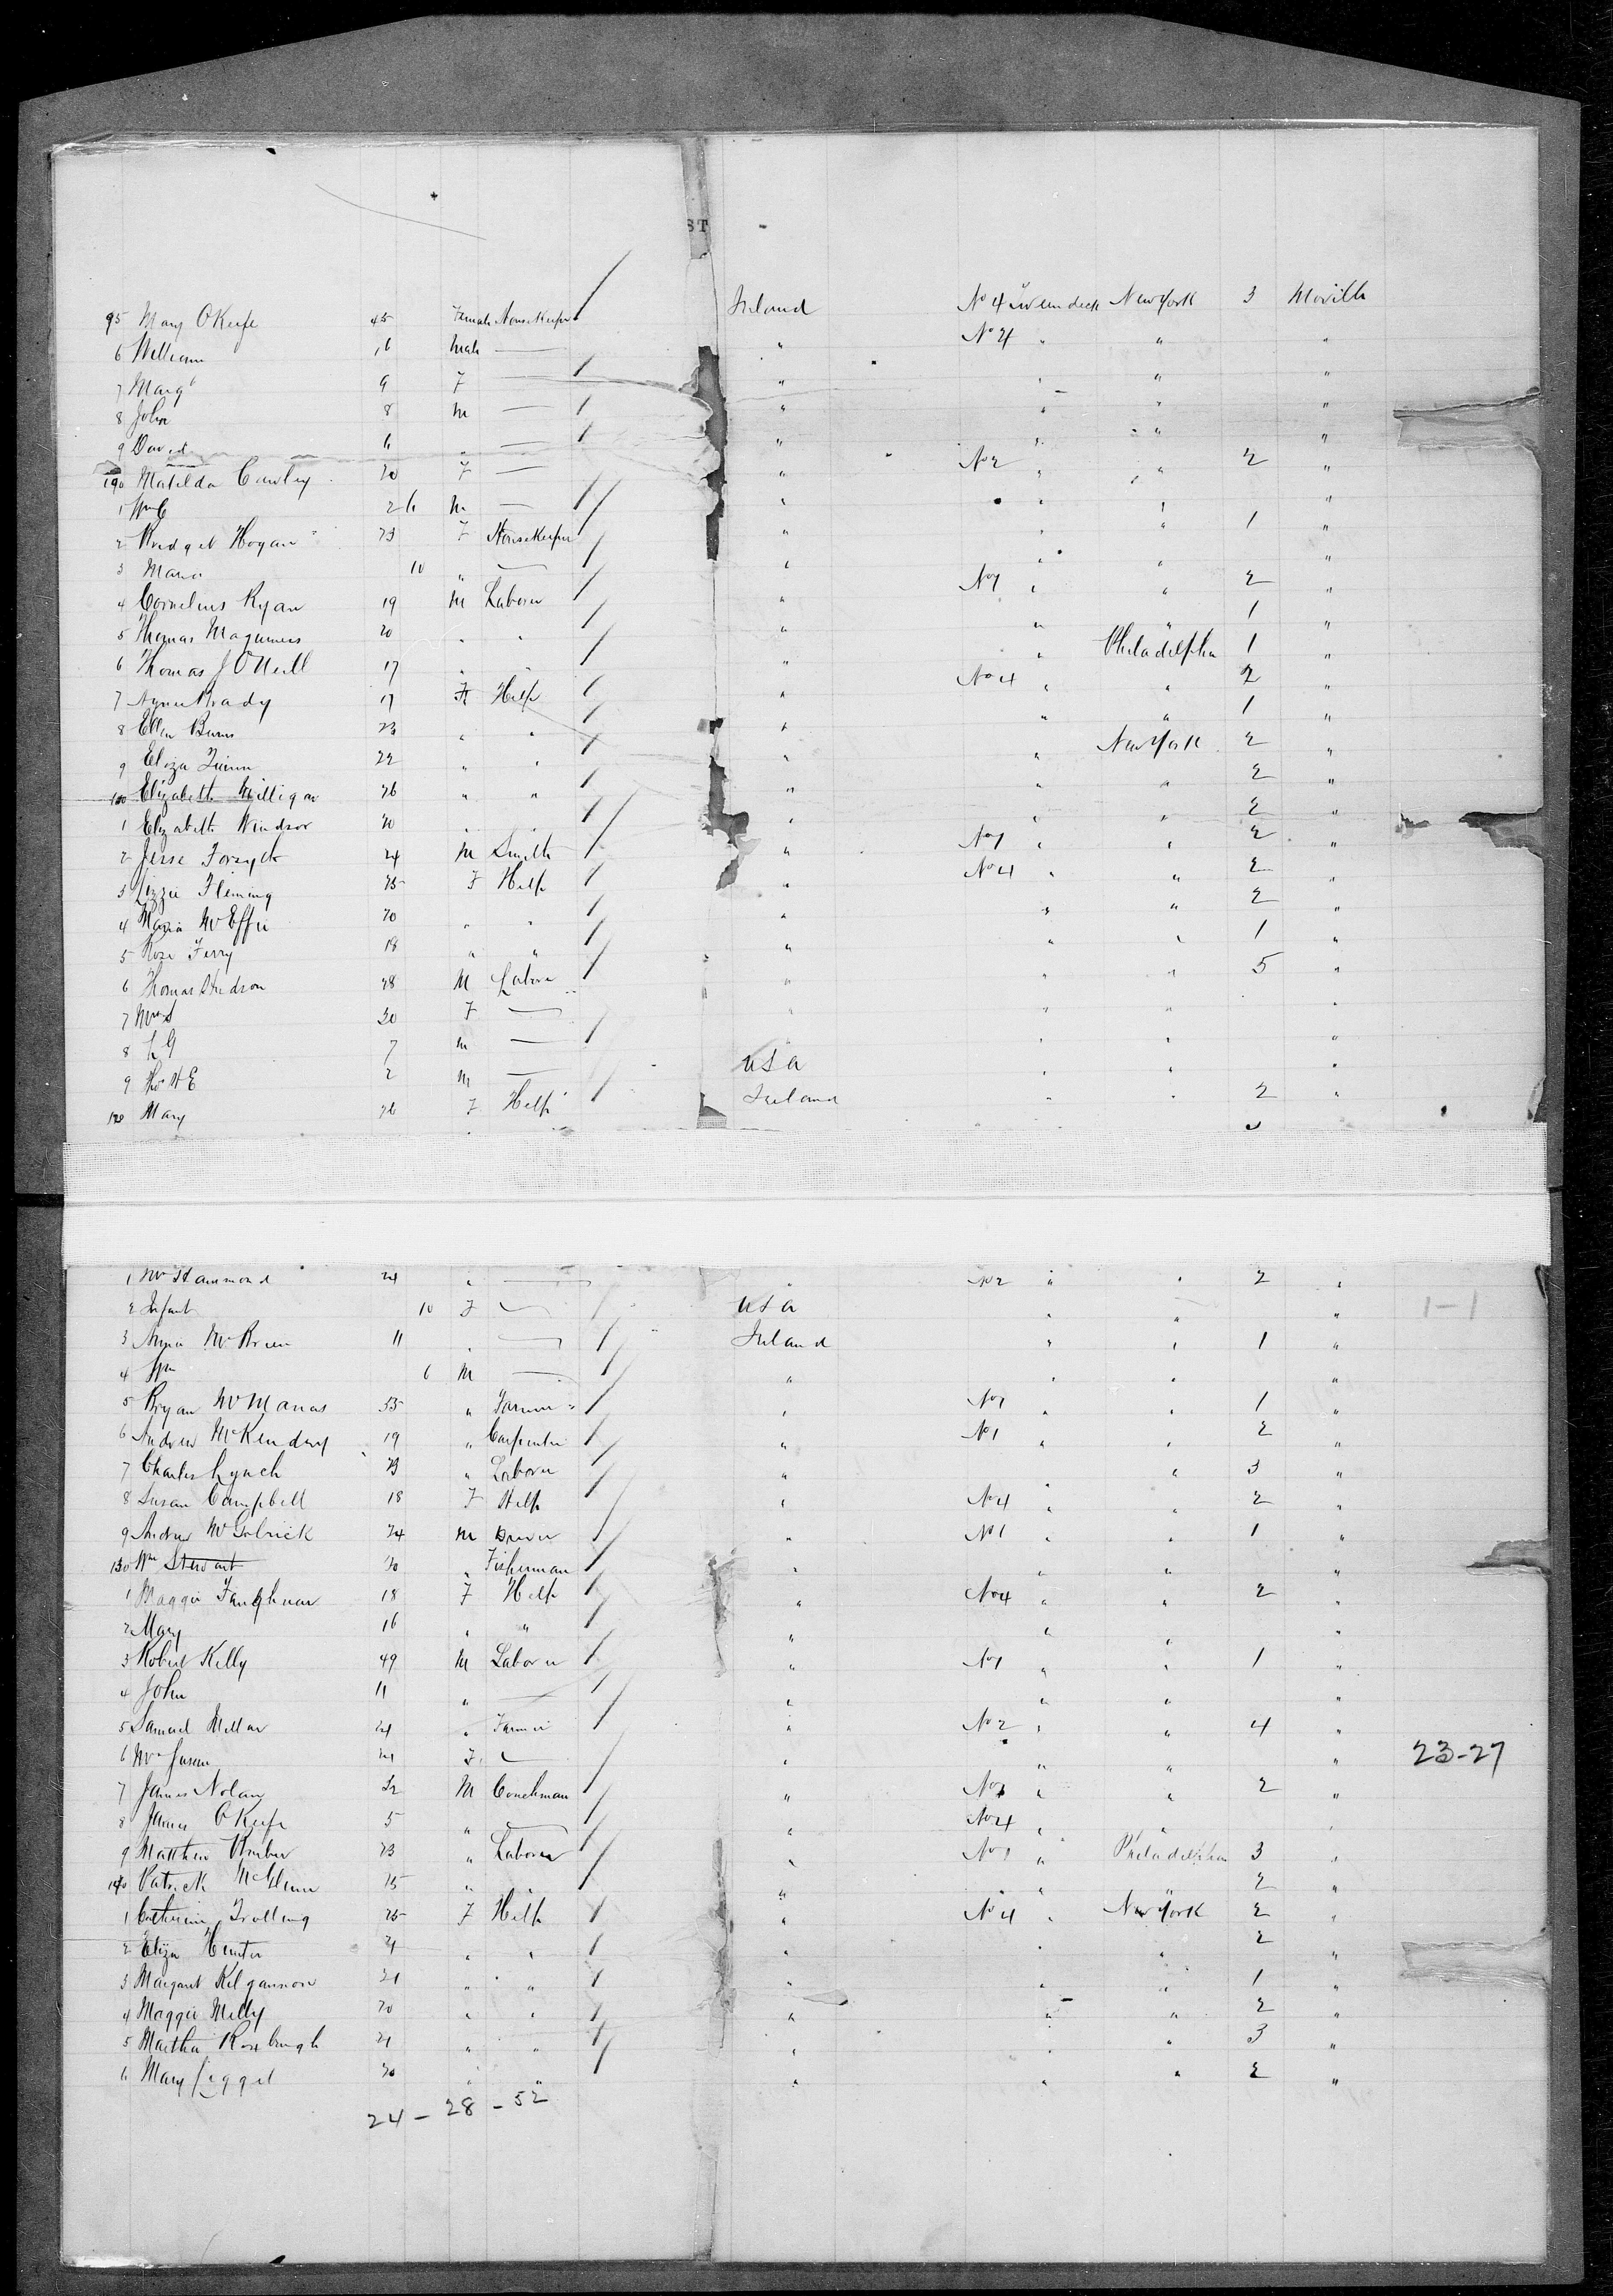 ST
95 Mary OKeefe 45 Female Housekeeper Ireland No 4 Tween deck New York 3 Moville
6 William 16 Male — " No 4 " " "
7 Margt 9 F — " " " "
8 John 8 M — " " " "
9 David 6 " — " " " "
190 Matilda Cawley 20 F — " No 2 " " 2 "
1 Wm C 26 M — " " " "
2 Bridget Hogan 23 F Housekeeper " " " 1 "
3 Maria 10 " — " " " "
4 Cornelius Ryan 19 M Laborer " No 1 " " 2 "
5 Thomas 20 " " " " " 1 "
6 Thomas J ONeill 17 " " " " Philadelphia 1 "
7 Brady 17 F Help " No 4 " " 2 "
8 Ellen Burns 23 " " " " " 1 "
9 Eliza Quinn 22 " " " " New York 2 "
100 Elizabeth Milligan 26 " " " " " 2 "
1 Elizabeth Windsor 20 " " " " " 2 "
2 Jesse Forsyth 24 M Smith " No 1 " " 2 "
3 Lizzie Fleming 25 F Help " No 4 " " 2 "
4 Maria McEffie 20 " " " " " 2 "
5 Rose Ferry 18 " " " " " 1 "
6 Thomas Hudson 28 M Labore " " " 5 "
7 Mrs S 30 F — " " " "
8 G 7 M — " " " "
9 Thos H E 2 M — USA " " "
120 Mary 26 F Help Ireland " " 2 "
1 Mrs Hammond 24 " — " No 2 " " 2 "
2 Infant 10 F — USA " " " 1-1
3 Anna McBrien 11 " — Ireland " " 1 "
4 Wm 6 M — " " " "
5 Bryan McManas 55 " Farmer " No 1 " " 1 "
6 Andrew McKendry 19 " Carpenter " No 1 " " 2 "
7 Charles Lynch 23 " Laborer " " 3 "
8 Susan Campbell 18 F Help " No 4 " " 2 "
9 Andrew McGolrick 24 M " No 1 " " 1 "
130 Wm Stewart 30 " Fisherman " " " "
1 Maggie 18 F Help " No 4 " " 2 "
2 Mary 16 " " " " " "
3 Robert Kelly 49 M Laborer " No 1 " " 1 "
4 John 11 " — " " " "
5 Samuel Millar 24 " Farmer " No 2 " " 4 "
6 Mrs Susan 24 F — " " " " 23-27
7 James Nolan 32 M Coachman " No 1 " " 2 "
8 James OKeefe 5 " — " No 4 " " "
9 Matthew 23 " Laborer " No 1 " Philadelphia 3 "
140 Patrick McGlinn 15 " " " " " 2 "
1 Catherine 25 F Help " No 4 " New York 2 "
2 Eliza Hunter 21 " " " " " 2 "
3 Margaret Kilgannon 21 " " " " " 1 "
4 Maggie Melly 20 " " " " " 2 "
5 Martha Roxbrugh 21 " " " " " 3 "
6 Mary Liggit 20 " " " " " 2 "
24 - 28 - 52